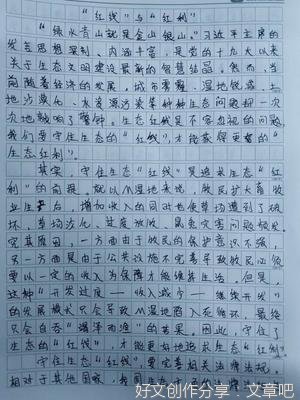 "红线"与"红利"
"绿水青山就是金山银山。"习近平主席的
发言思想深刻、内涵丰富,是党的十九大以来
关于生态文明建设最新的智慧结晶。然而,当
前随着经济的发展,城市雾霾、湿地锐减、土
地沙漠化、水资源污染等种种生态问题一次
次地敲响了警钟。生态红线是不容忽视的问题,
我们要守住生态的"红线",才能获得更多的"
生态红利"。
其实,守住生态"红线"是追求生态"红
利"的前提。就以湿地来说,牧民扩大畜牧
业生产后,增加收入的同时也使草场遭到了破
坏,草场沙化、过度放牧、鼠兔灾害问题频发。
究其原因,一方面由于牧民的保护意识不强,
另一方面是由于公共设施不完善导致牧民必须
要以一定的收入为保障才能维持生活。但是,
这种"开发过度——收入减少——继续开发"
的发展模式只会导致湿地陷入死循环,最终
只会自吞"竭泽而渔"的苦果。因此,守住了
生态的"红线",才能更好地追求生态"红利"。
守住生态"红线"要完善相关法律法规。
相对于其他国家,我国
好文创作分享:文章吧